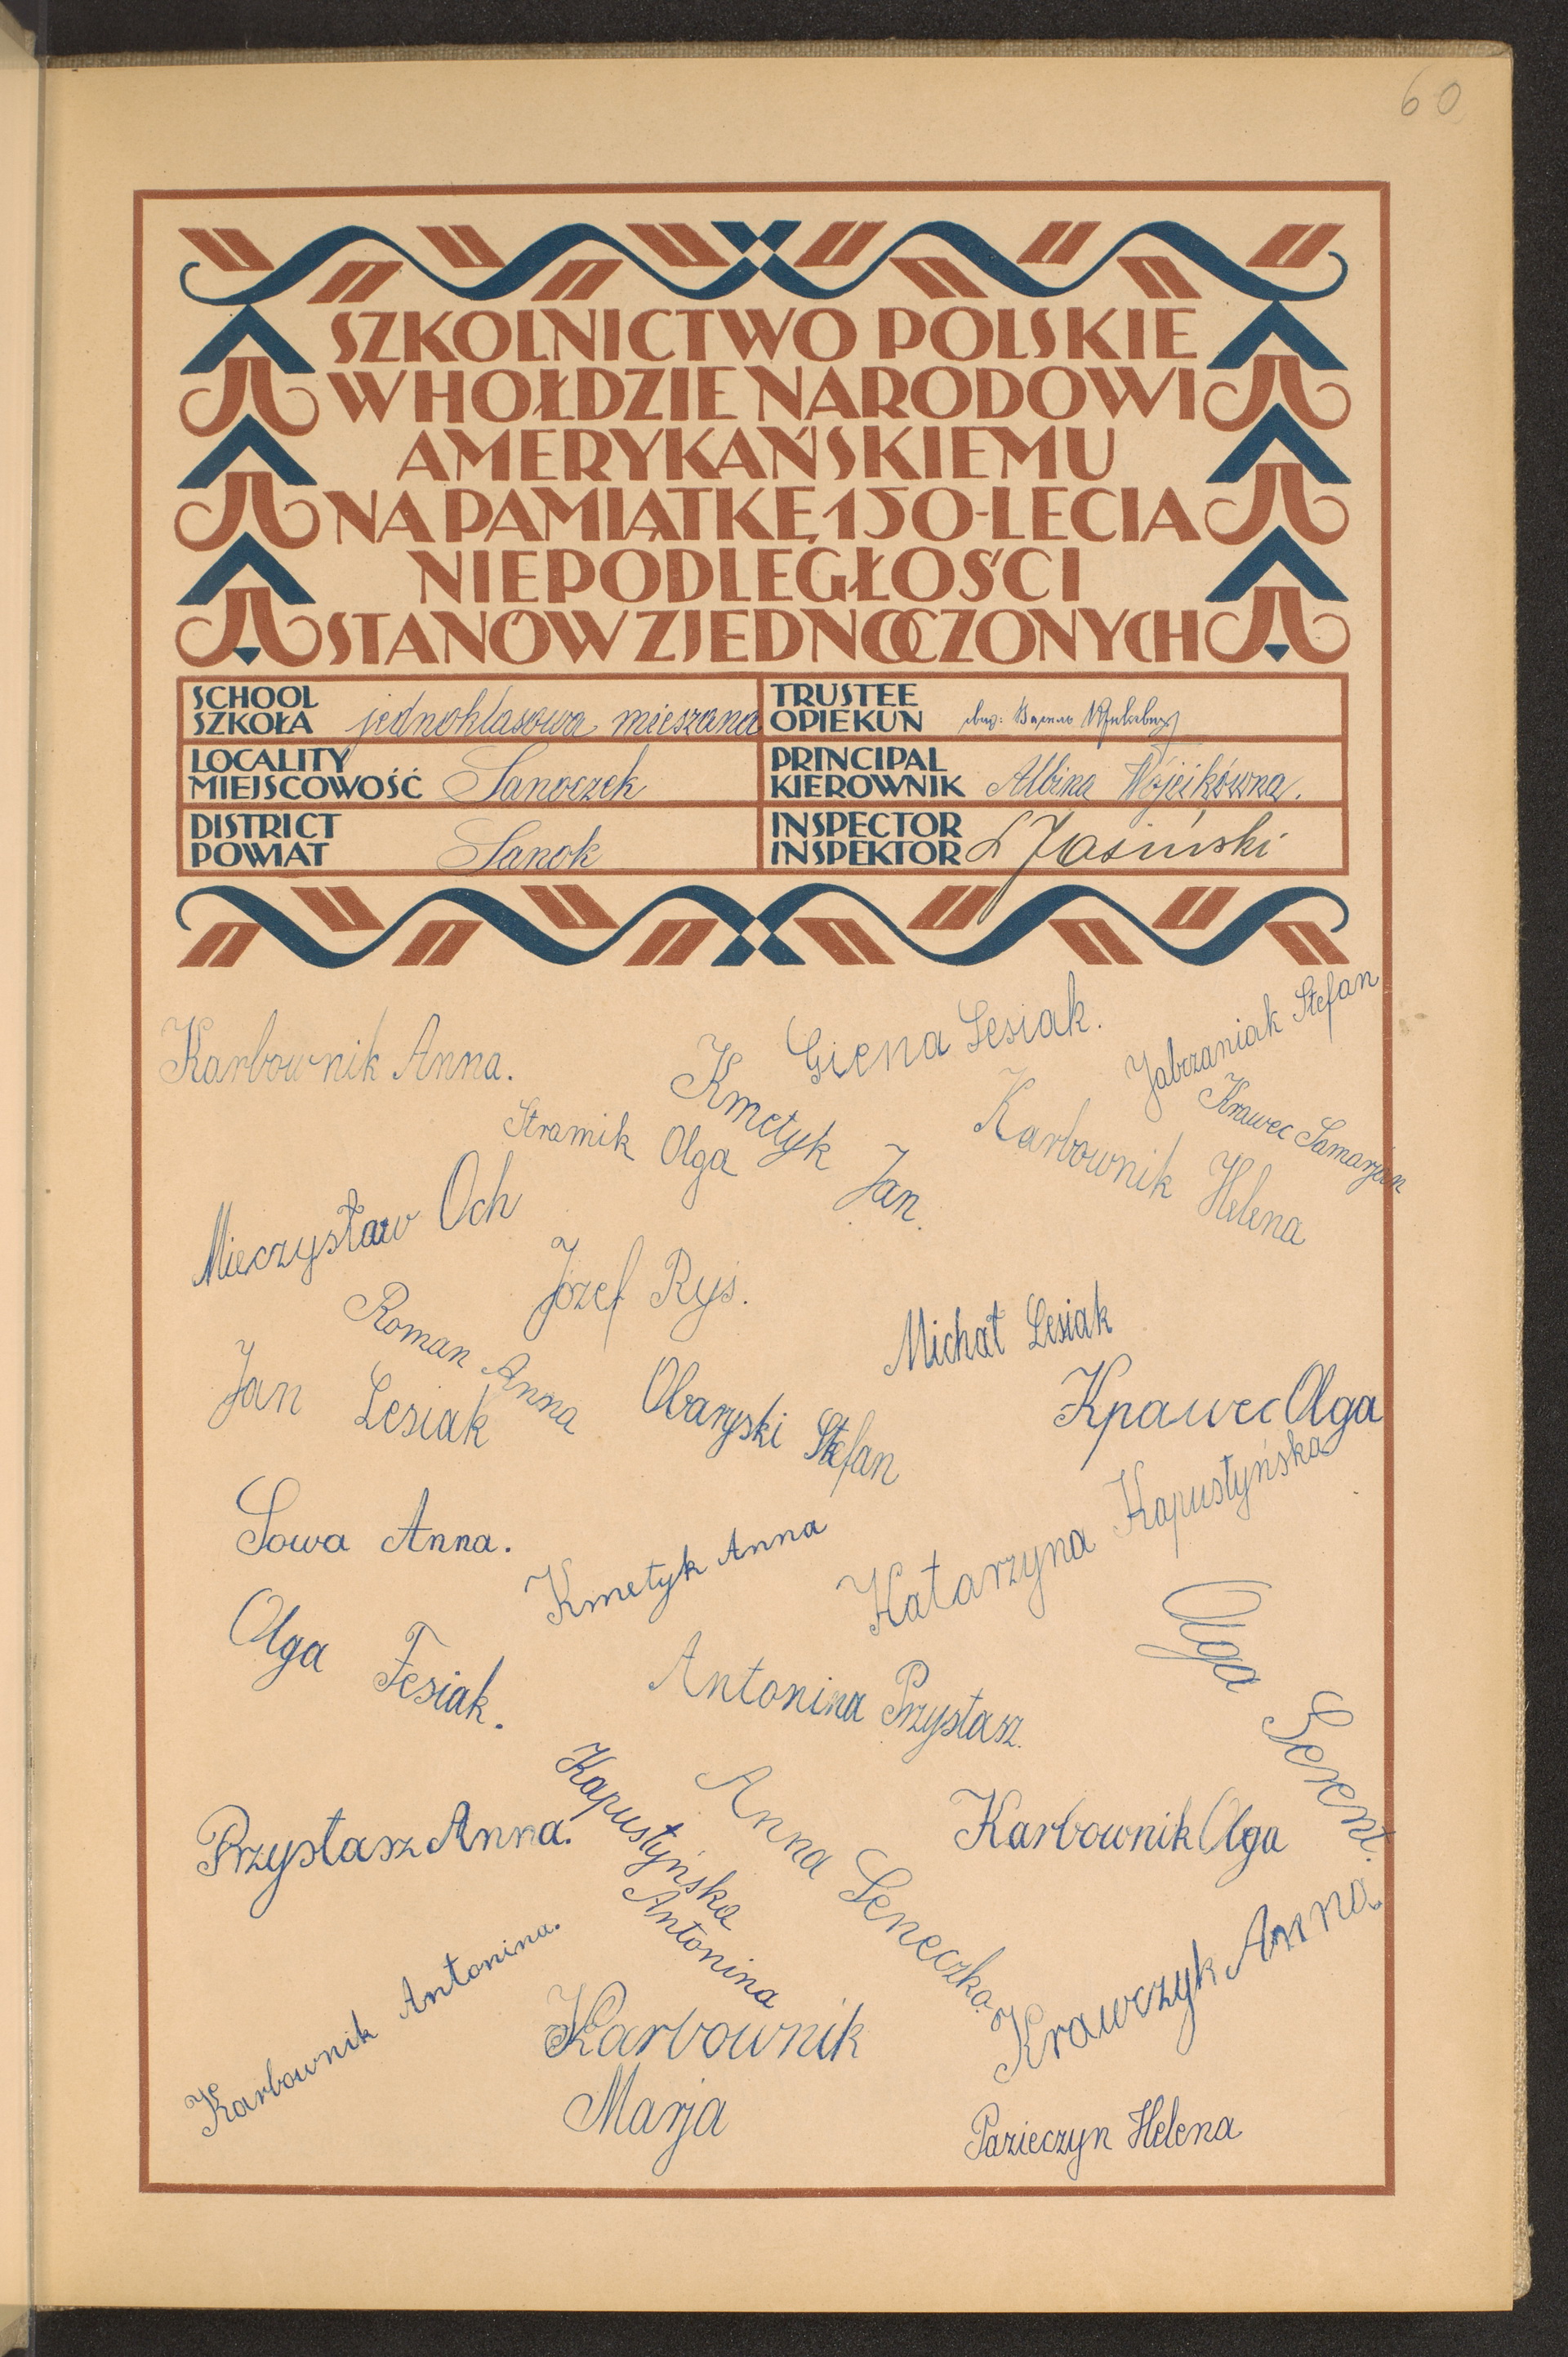 60
SZKOLNICTWO POLSKIE
W HOŁDZIE NARODOWI
AMERYKAŃSKIEMU
NA PAMIĄTKĘ 150-LECIA
NIEPODLEGŁOŚCI
STANÓW ZJEDNOCZONYCH
SCHOOL
SZKOŁA jednoklasowa mieszana
TRUSTEE
OPIEKUN
LOCALITY
MIEJSCOWOŚĆ Sanoczek
PRINCIPAL
KIEROWNIK Albina Wójcikówna.
DISTRICT
POWIAT Sanok
INSPECTOR
INSPEKTOR Jasiński
Karbownik Anna.
Giena Lesiak.
Jabczaniak Stefan
Kmetyk Jan.
Krawec Samarjan
Stramik Olga
Karbownik Helena
Mieczysław Och
Józef Ryś.
Roman Anna
Michał Lesiak
Jan Lesiak
Obaryski Stefan
Kpawec Olga
Sowa Anna.
Kmetyk Anna
Katarzyna Kapustyńska
Olga Fesiak.
Antonina Przystasz.
Olga
Kapustyńska
Antonina
Anna Seneczko.
Przystasz Anna.
Karbownik Olga
Karbownik Antonina.
Krawczyk Anna.
Karbownik
Marja
Pazieczyn Helena